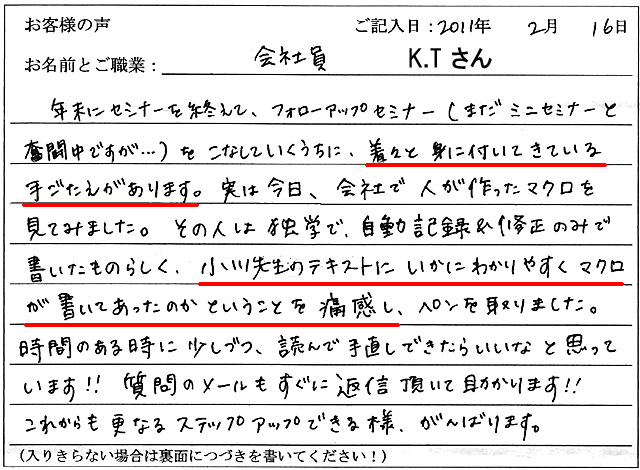 お客様の声 ご記入日：2011年 2月 16日
お名前とご職業： 会社員 K.T さん
年末にセミナーを終えて、フォローアップセミナー（まだミニセミナーと
奮闘中ですが…）を こなしていくうちに、着々と 身に付いてきている
手ごたえがあります。実は今日、会社で 人が作ったマクロを
見てみました。その人は 独学で、自動記録&修正のみで
書いたものらしく、小川先生のテキストに いかにわかりやすく マクロ
が 書いてあったのか ということを 痛感し、ペンを取りました。
時間のある時に 少しづつ、読んで 手直しできたらいいなと思って
います!! 質問のメールもすぐに返信頂いて助かります!!
これからも 更なる ステップアップできる様、がんばります。
（入りきらない場合は裏面につづきを書いてください！）